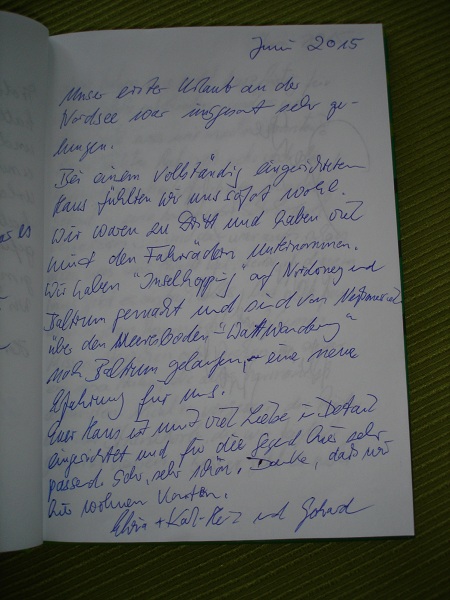 Juni 2015
Unser erster Urlaub an der
Nordsee war insgesamt sehr ge-
lungen.
Bei einem vollständig eingerichteten
Haus fühlten wir uns sofort wohl.
Wir waren zu Dritt und haben viel
mit den Fahrrädern unternommen.
Wir haben "Inselhopping" auf Norderney und
Baltrum gemacht und sind von Neßmersiel
über den Meeresboden "Wattwanderung"
nach Baltrum gelaufen, eine neue
Erfahrung für uns.
Euer Haus ist mit viel Liebe im Detail
eingerichtet und für die Gegend hier sehr
passend. Sehr, sehr schön. Danke, daß wir
hier wohnen konnten.
+ Karl-Heinz und Gerhard
as es